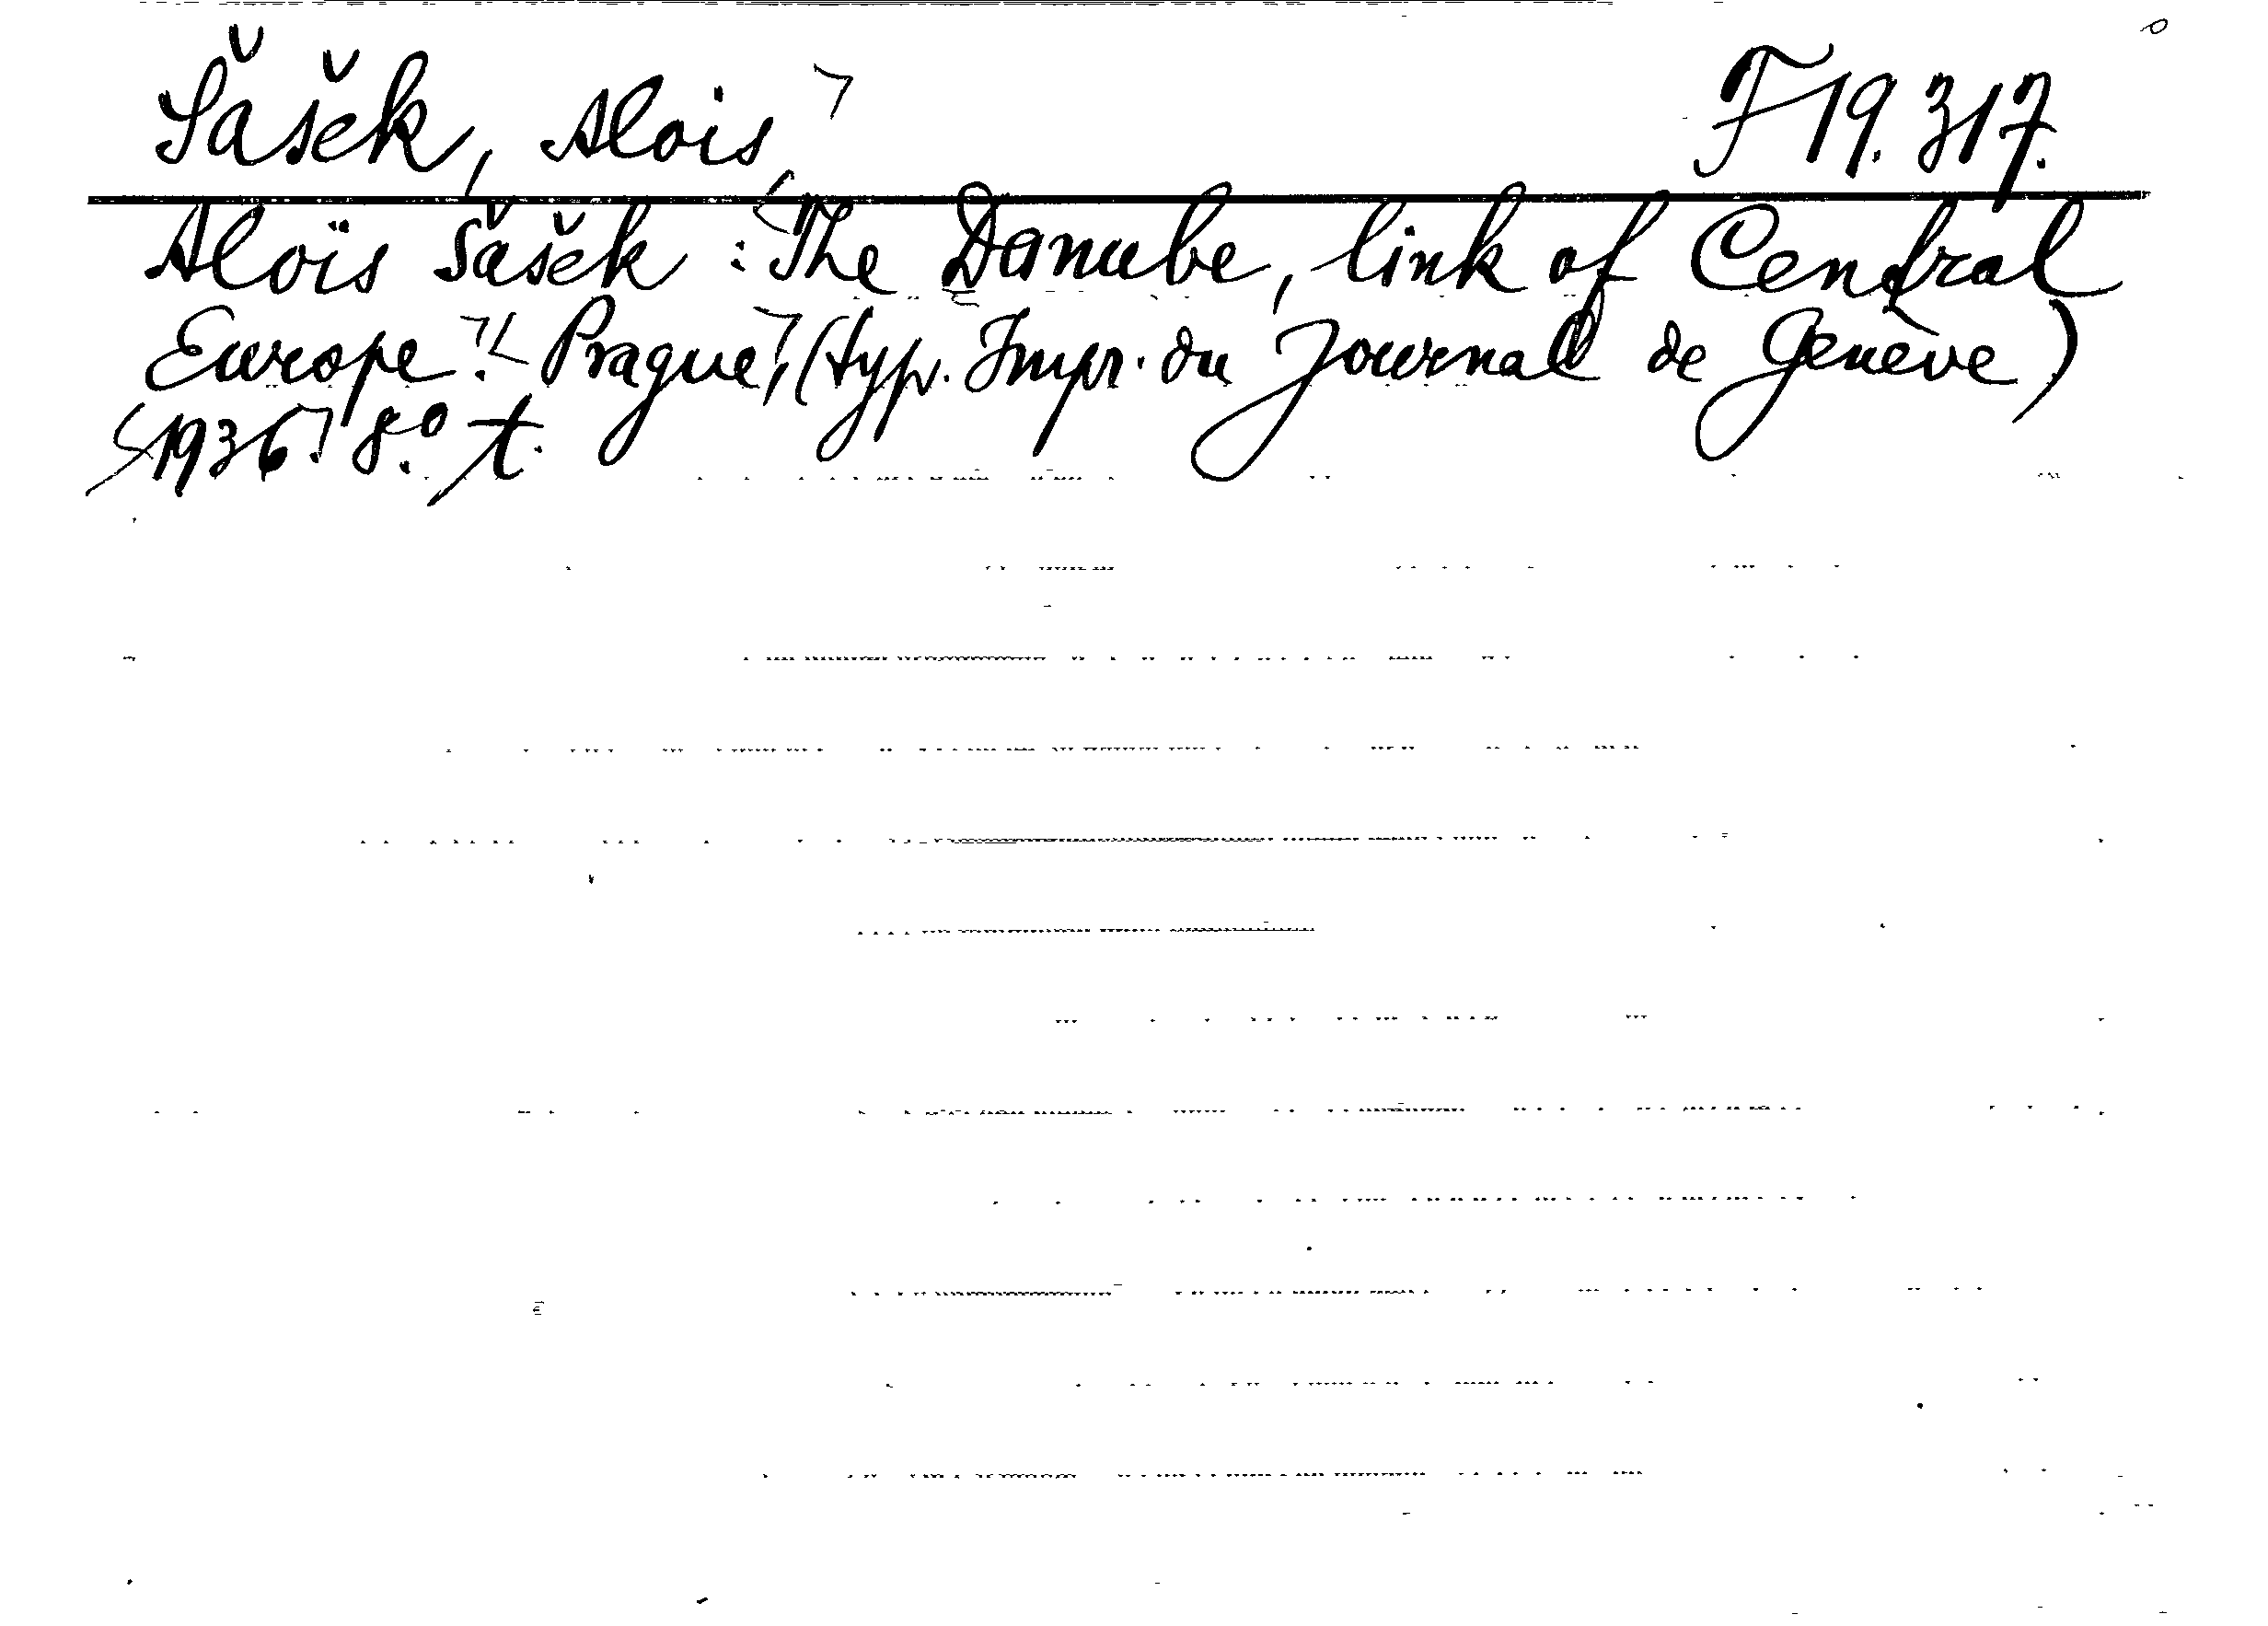 Šašek, Alois F 19.317.
Aloïs Šašek: The Danube, link of Central
Europe. Prague, (typ. Impr. du Journal de Genève)
1936. 8.º t.